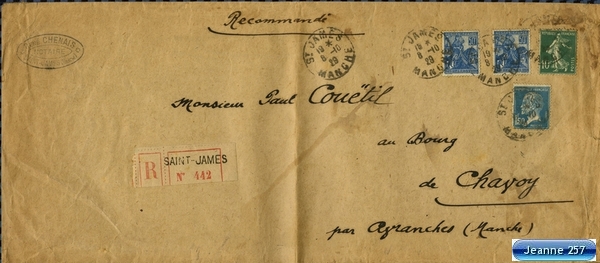 Recommandé
ST JAMES
19 * 8-10 29
MANCHE
Monsieur Paul Couëtil
au Bourg
de Chavoy
par Avranches (Manche)
R SAINT-JAMES
N° 442
Jeanne 257